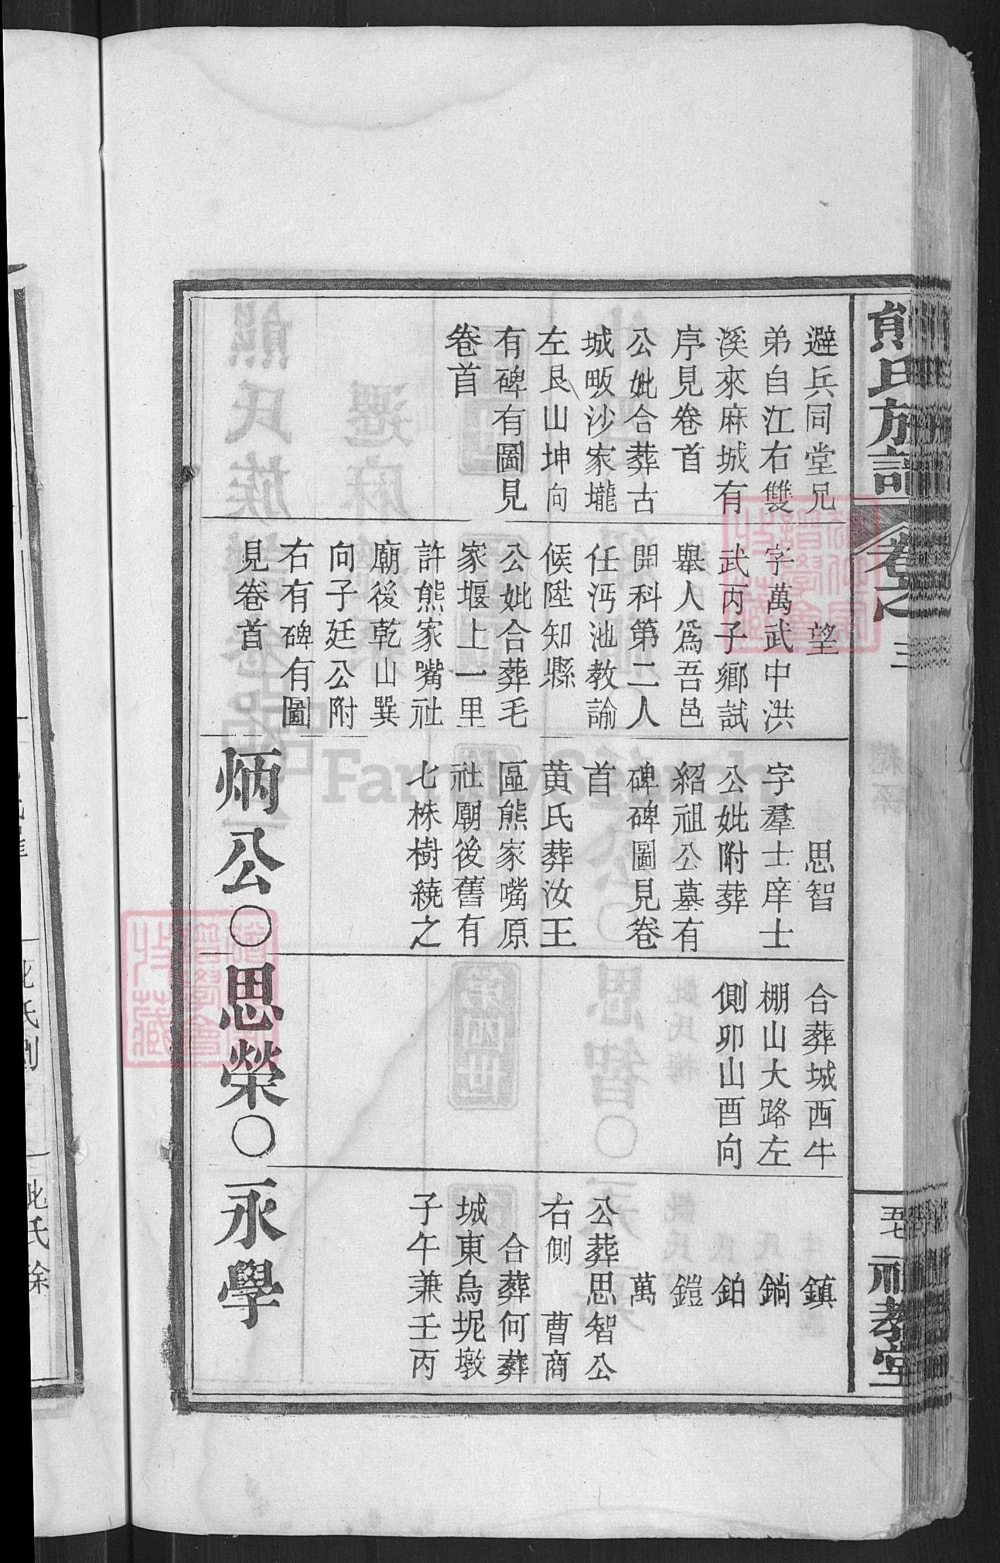 避兵同堂兄
弟自江右雙
溪來麻城有
序見卷首
公妣合葬古
城畈沙家壠
左艮山坤向
有碑有圖見
卷首
望
字萬武中洪
武丙子鄉試
舉人爲吾邑
開科第二人
任沔池教諭
候陞知縣
公妣合葬毛
家堰上一里
許熊家嘴社
廟後乾山巽
向子廷公附
右有碑有圖
見卷首
思智
字羣士庠士
公妣附葬
紹祖公墓有
碑碑圖見卷
首
黄氏葬汝王
區熊家嘴原
社廟後舊有
七株樹繞之
炳公〇思榮〇永學
合葬城西牛
棚山大路左
側卯山酉向
鎮
鋿
鉑
鎧
萬
公葬思智公
右側 曹商
合葬何葬
城東烏坭墩
子午兼壬丙
熊氏族譜
卷之三
五七
祖教堂
FamilySearch